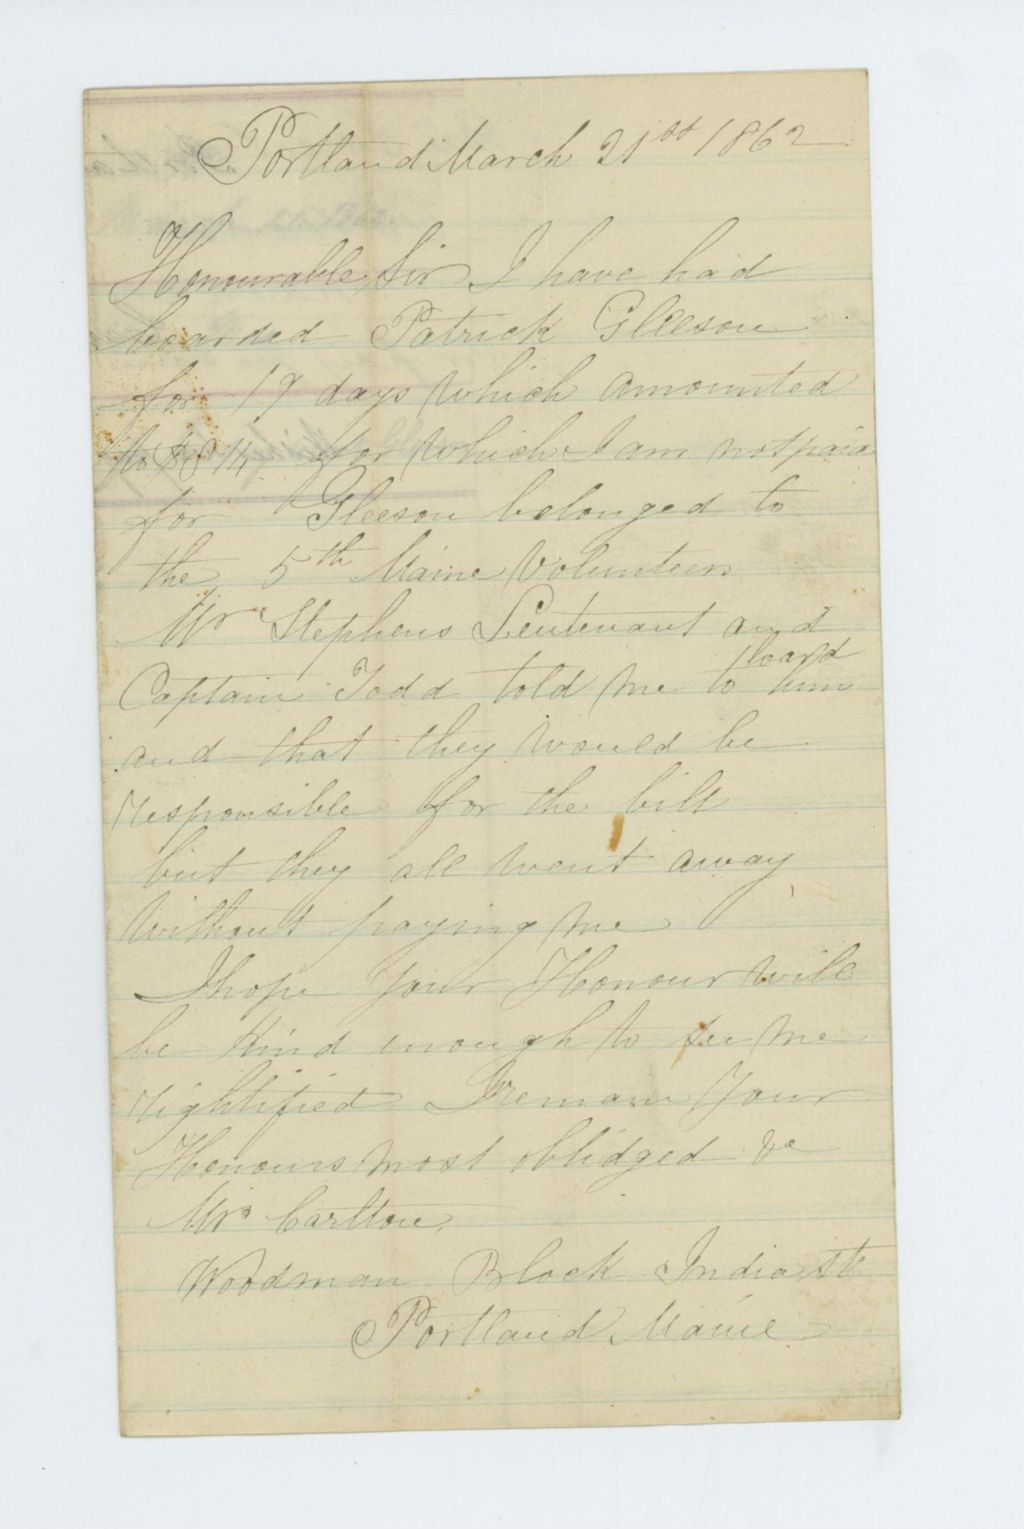 Portland March 21st 1862
Honourable Sir I have had
boarded Patrick Gleeson
for 19 days which amounted
to $8 14 for which I am not paid
for Gleeson belonged to
the 5th Maine Volunteers
Mr Stephens Leutenant and
board
Captain Todd told me to him
and that they would be
responsible for the bill
but they all went away
without paying me
I hope your Honour will
be kind enough to see me
rightified I remain Your
Honours most oblidged &c
Mrs Carlton
Woodman Block India St
Portland Maine